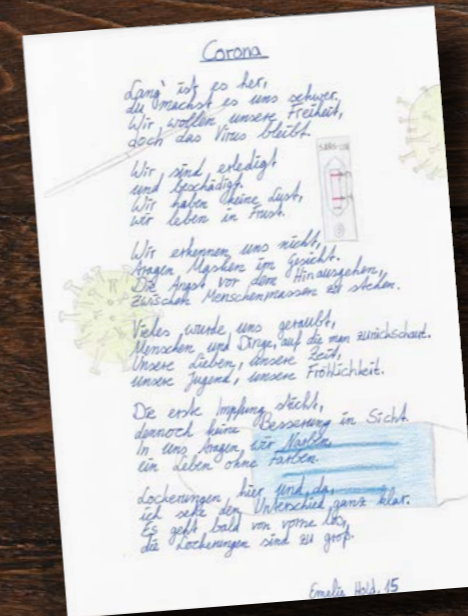 Corona
Lang' ist es her,
du machst es uns schwer.
Wir wollen unsere Freiheit,
doch das Virus bleibt.
Wir sind erledigt
und beschädigt.
Wir haben keine Lust,
wir leben in Frust.
Wir erkennen uns nicht,
tragen Masken im Gesicht.
Die Angst vor dem Hinausgehen,
zwischen Menschenmassen zu stehen.
Vieles wurde uns geraubt,
Menschen und Dinge, auf die man zurückschaut.
Unsere Lieben, unsere Zeit,
unsere Jugend, unsere Fröhlichkeit.
Die erste Impfung sticht,
dennoch keine Besserung in Sicht.
In uns tragen wir Narben,
ein Leben ohne Farben.
Lockerungen hier und da,
ich sehe den Unterschied ganz klar.
Es geht bald von vorne los,
die Lockerungen sind zu groß.
Emelie Hold, 15